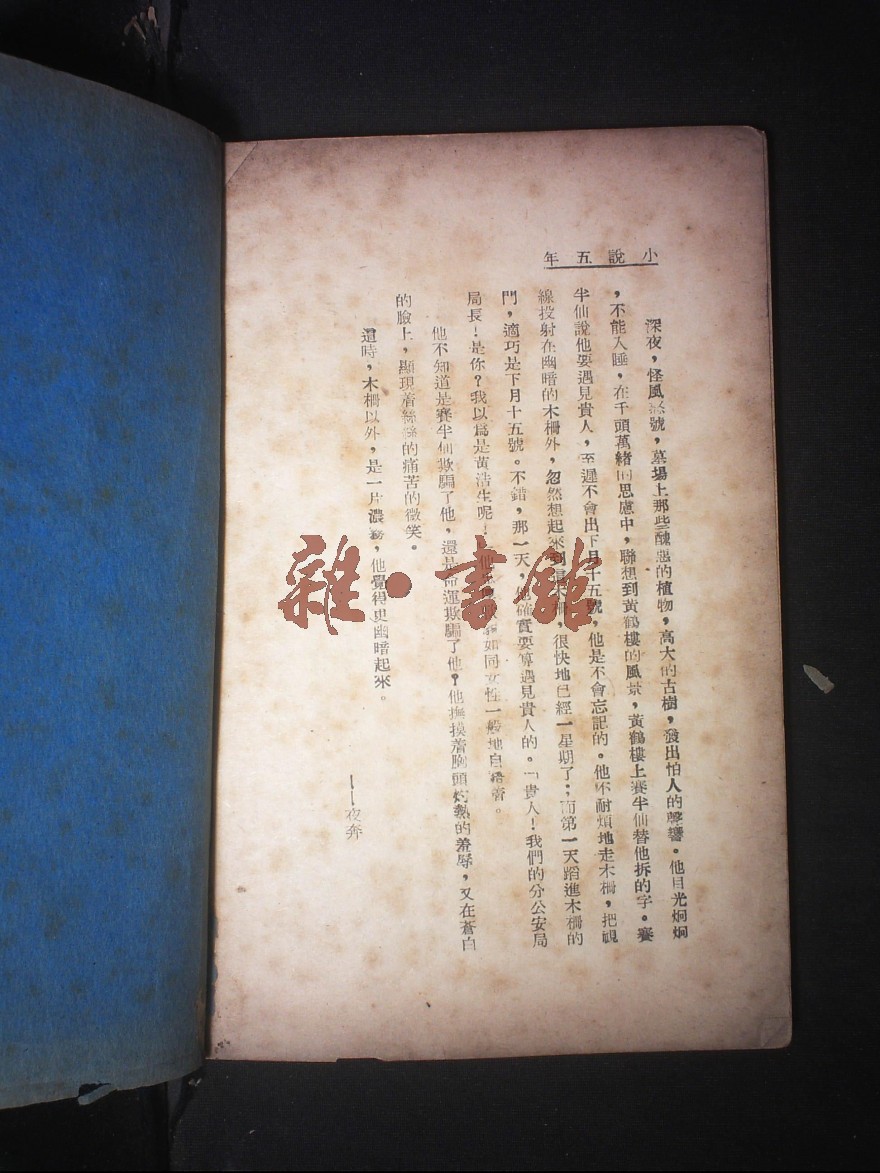 小說五年
深夜,怪風怒號,墓場上那些醜惡的植物,高大的古樹,發出怕人的聲響。他目光炯炯
,不能入睡,在千頭萬緒的思慮中,聯想到黃鶴樓的風景,黃鶴樓上賽半仙替他拆的字。賽
半仙說他要遇見貴人,至遲不會出下月十五號,他是不會忘記的。他不耐煩地走木柵,把視
線投射在幽暗的木柵外,忽然想起來到這木柵,很快地已經一星期了;而第一天蹈進木柵的
門,適巧是下月十五號。不錯,那一天,他確實要算遇見貴人的。「貴人!我們的分公安局
局長!是你?我以爲是黃浩生呢!如同女性一般地自語着。
他不知道是賽半仙欺騙了他,還是命運欺騙了他?他撫摸着胸頭灼熱的羞辱,又在蒼白
的臉上,顯現着絲絲的痛苦的微笑。
這時,木柵以外,是一片濃霧,他覺得更幽暗起來。
——夜奔
雜·書館